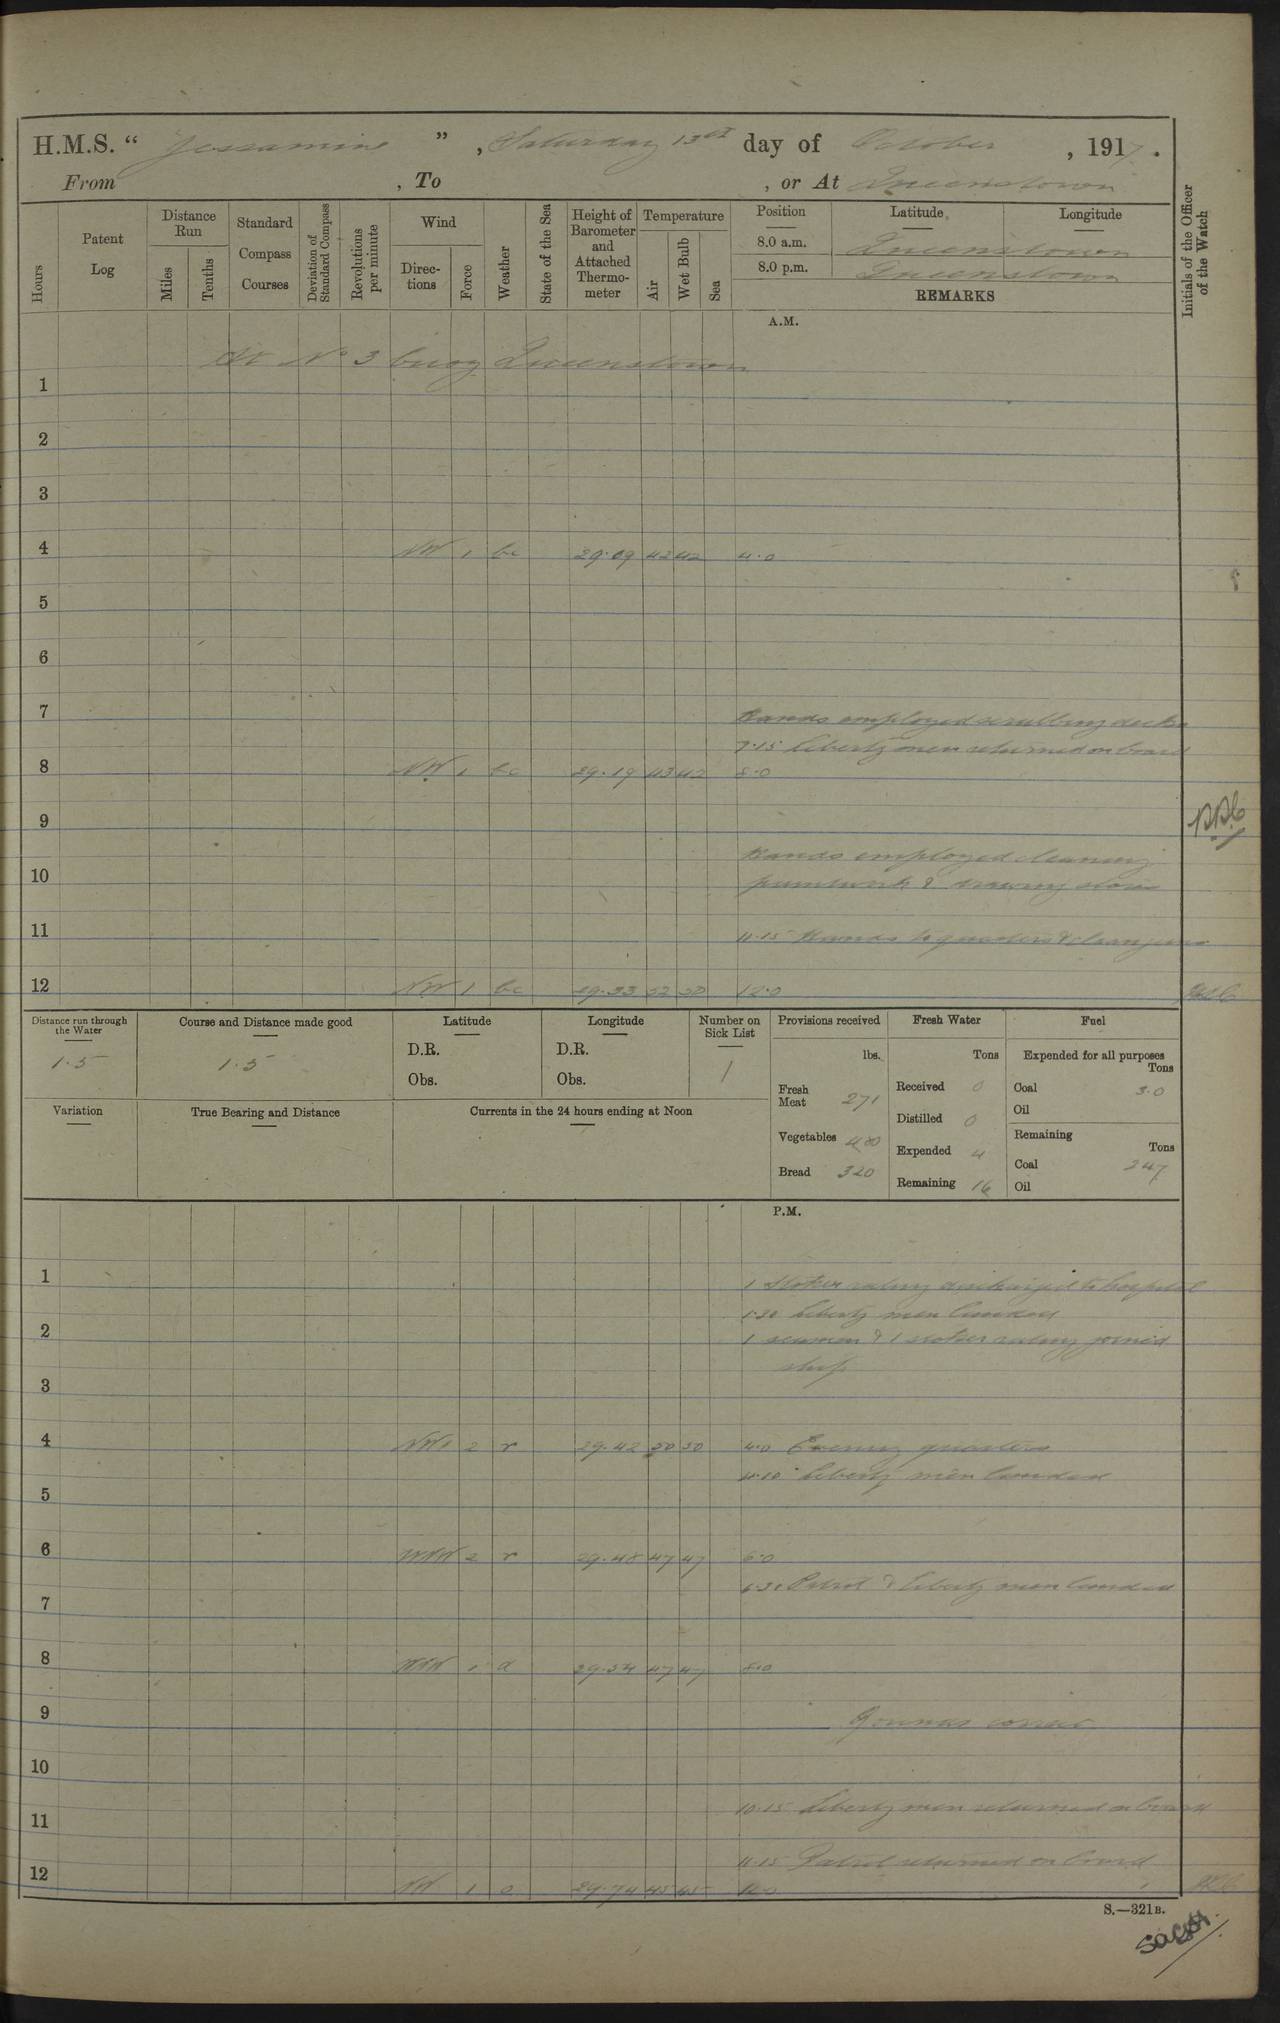 H.M.S. “ Jessamine ” , Saturday 13th day of October , 1917 .
From , To , or At Queenstown
Hours
Patent Log
Distance Run
Miles
Tenths
Standard Compass Courses
Deviation of Standard Compass
Revolutions per minute
Wind
Direc-tions
Force
Weather
State of the Sea
Height of Barometer and Attached Thermo-meter
Temperature
Air
Wet Bulb
Sea
Position Latitude Longitude
8.0 a.m. Queenstown
8.0 p.m. Queenstown
REMARKS
Initials of the Officer of the Watch
A.M.
At No 3 buoy Queenstown
1
2
3
4 NW 1 bc 29.09 42 42 4.0
5
6
7 Hands employed scrubbing decks
7.15 Liberty men returned on board
8 NW 1 bc 29.19 43 42 8.0
9
Hands employed cleaning
10 paintwork & drawing stores
11 11.15 Hands to quarters & clean guns
12 NW 1 bc 29.33 52 50 12.0
Distance run through the Water
1.5
Course and Distance made good
1.5
Latitude
D.R.
Obs.
Longitude
D.R.
Obs.
Number on Sick List
1
Provisions received
lbs.
Fresh Meat 271
Vegetables 480
Bread 320
Fresh Water
Tons
Received 0
Distilled 0
Expended 4
Remaining 16
Fuel
Expended for all purposes
Tons
Coal 3.0
Oil
Remaining
Tons
Coal 247
Oil
Variation
True Bearing and Distance
Currents in the 24 hours ending at Noon
P.M.
1 1 Stoker rating discharged to hospital
1.30 Liberty men landed
2 1 seaman & 1 stoker rating joined
ship
3
4 NW 2 r 29.42 50 50 4.0 Evening quarters
4.10 Liberty men landed
5
6 WNW 2 r 29.48 47 47 6.0
6.30 Patrol & liberty men landed
7
8 WNW 1 d 29.54 47 47 8.0
9 Rounds correct
10
10.15 Liberty men returned on board
11
11.15 Patrol returned on board
12 NW 1 o 29.74 45 45 12.0
S.—321B.